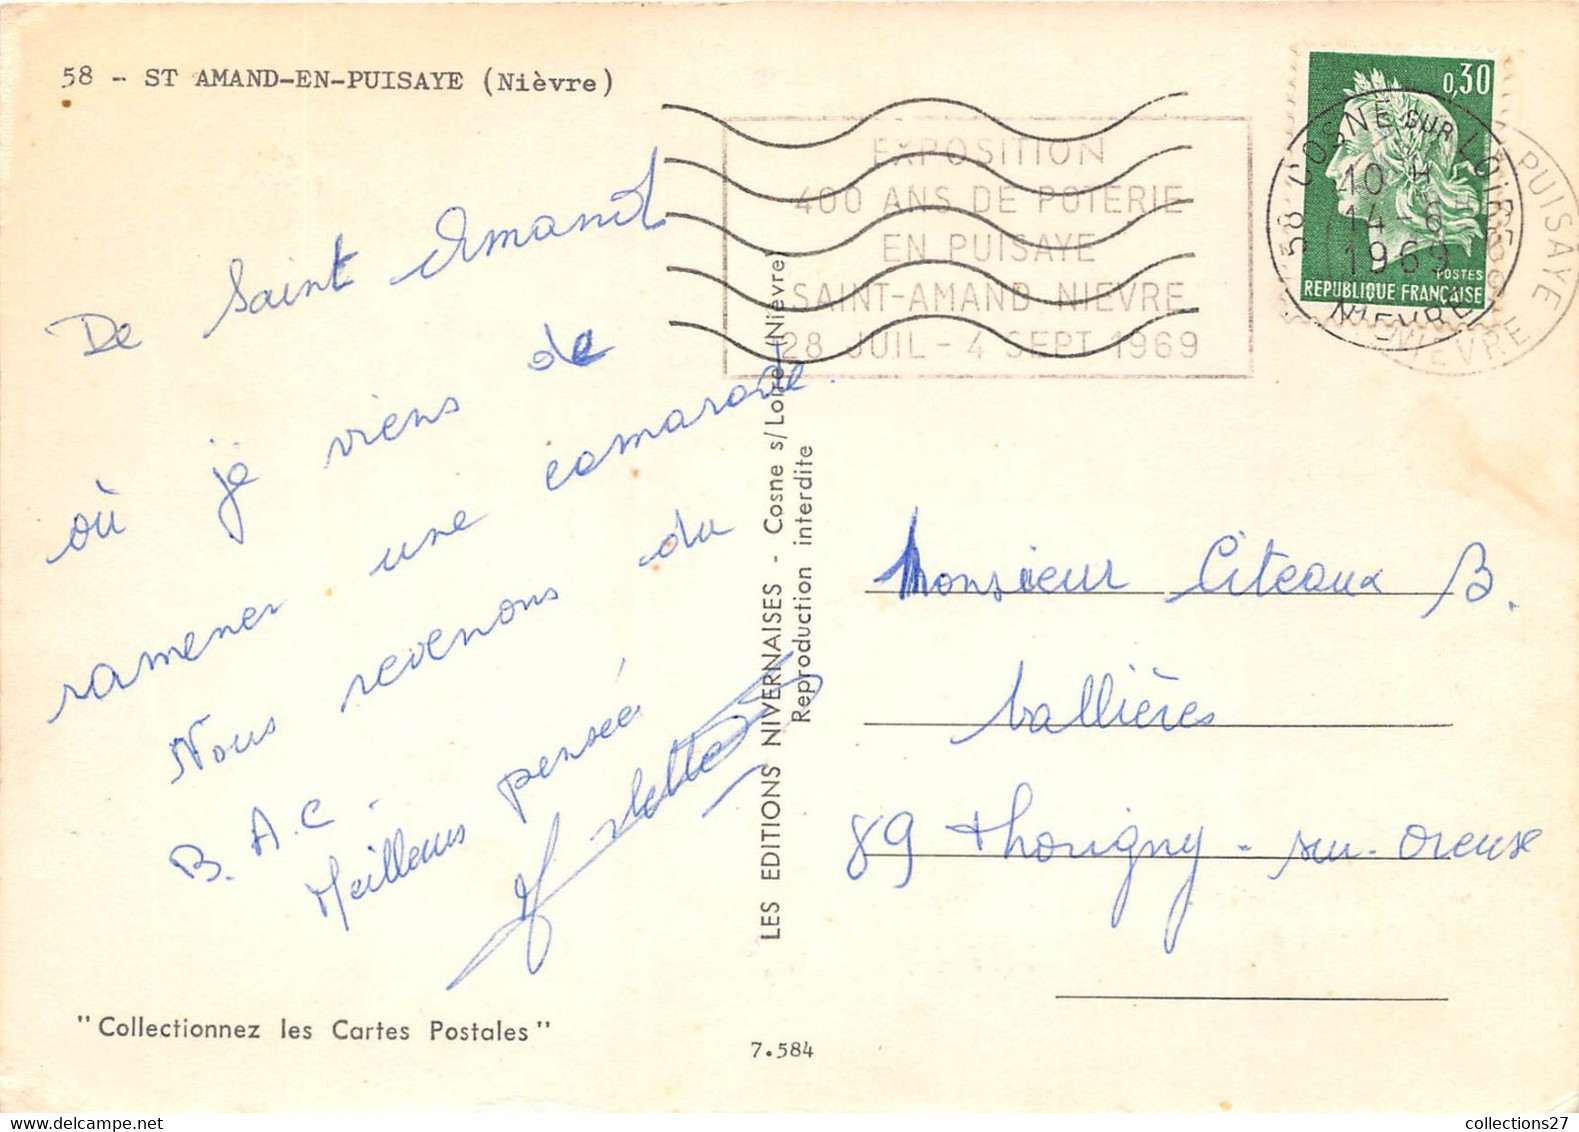 58 - ST AMAND-EN-PUISAYE (Nièvre)
EXPOSITION
400 ANS DE POTERIE
EN PUISAYE
SAINT-AMAND NIEVRE
28 JUIL - 4 SEPT 1969
0,30
POSTES
REPUBLIQUE FRANÇAISE
58 COSNE SUR LOIRE
10 H
14-6
1969
NIEVRE
PUISAYE
NIEVRE
De Saint Amand
où je viens de
ramener une camarade.
Nous revenons du
B.A.C.
Meilleurs pensée
LES EDITIONS NIVERNAISES - Cosne s/Loire (Nièvre)
Reproduction interdite
Monsieur Citeaux B.
Vallières
89 Thorigny-sur-Oreuse
"Collectionnez les Cartes Postales"
7.584
collections27